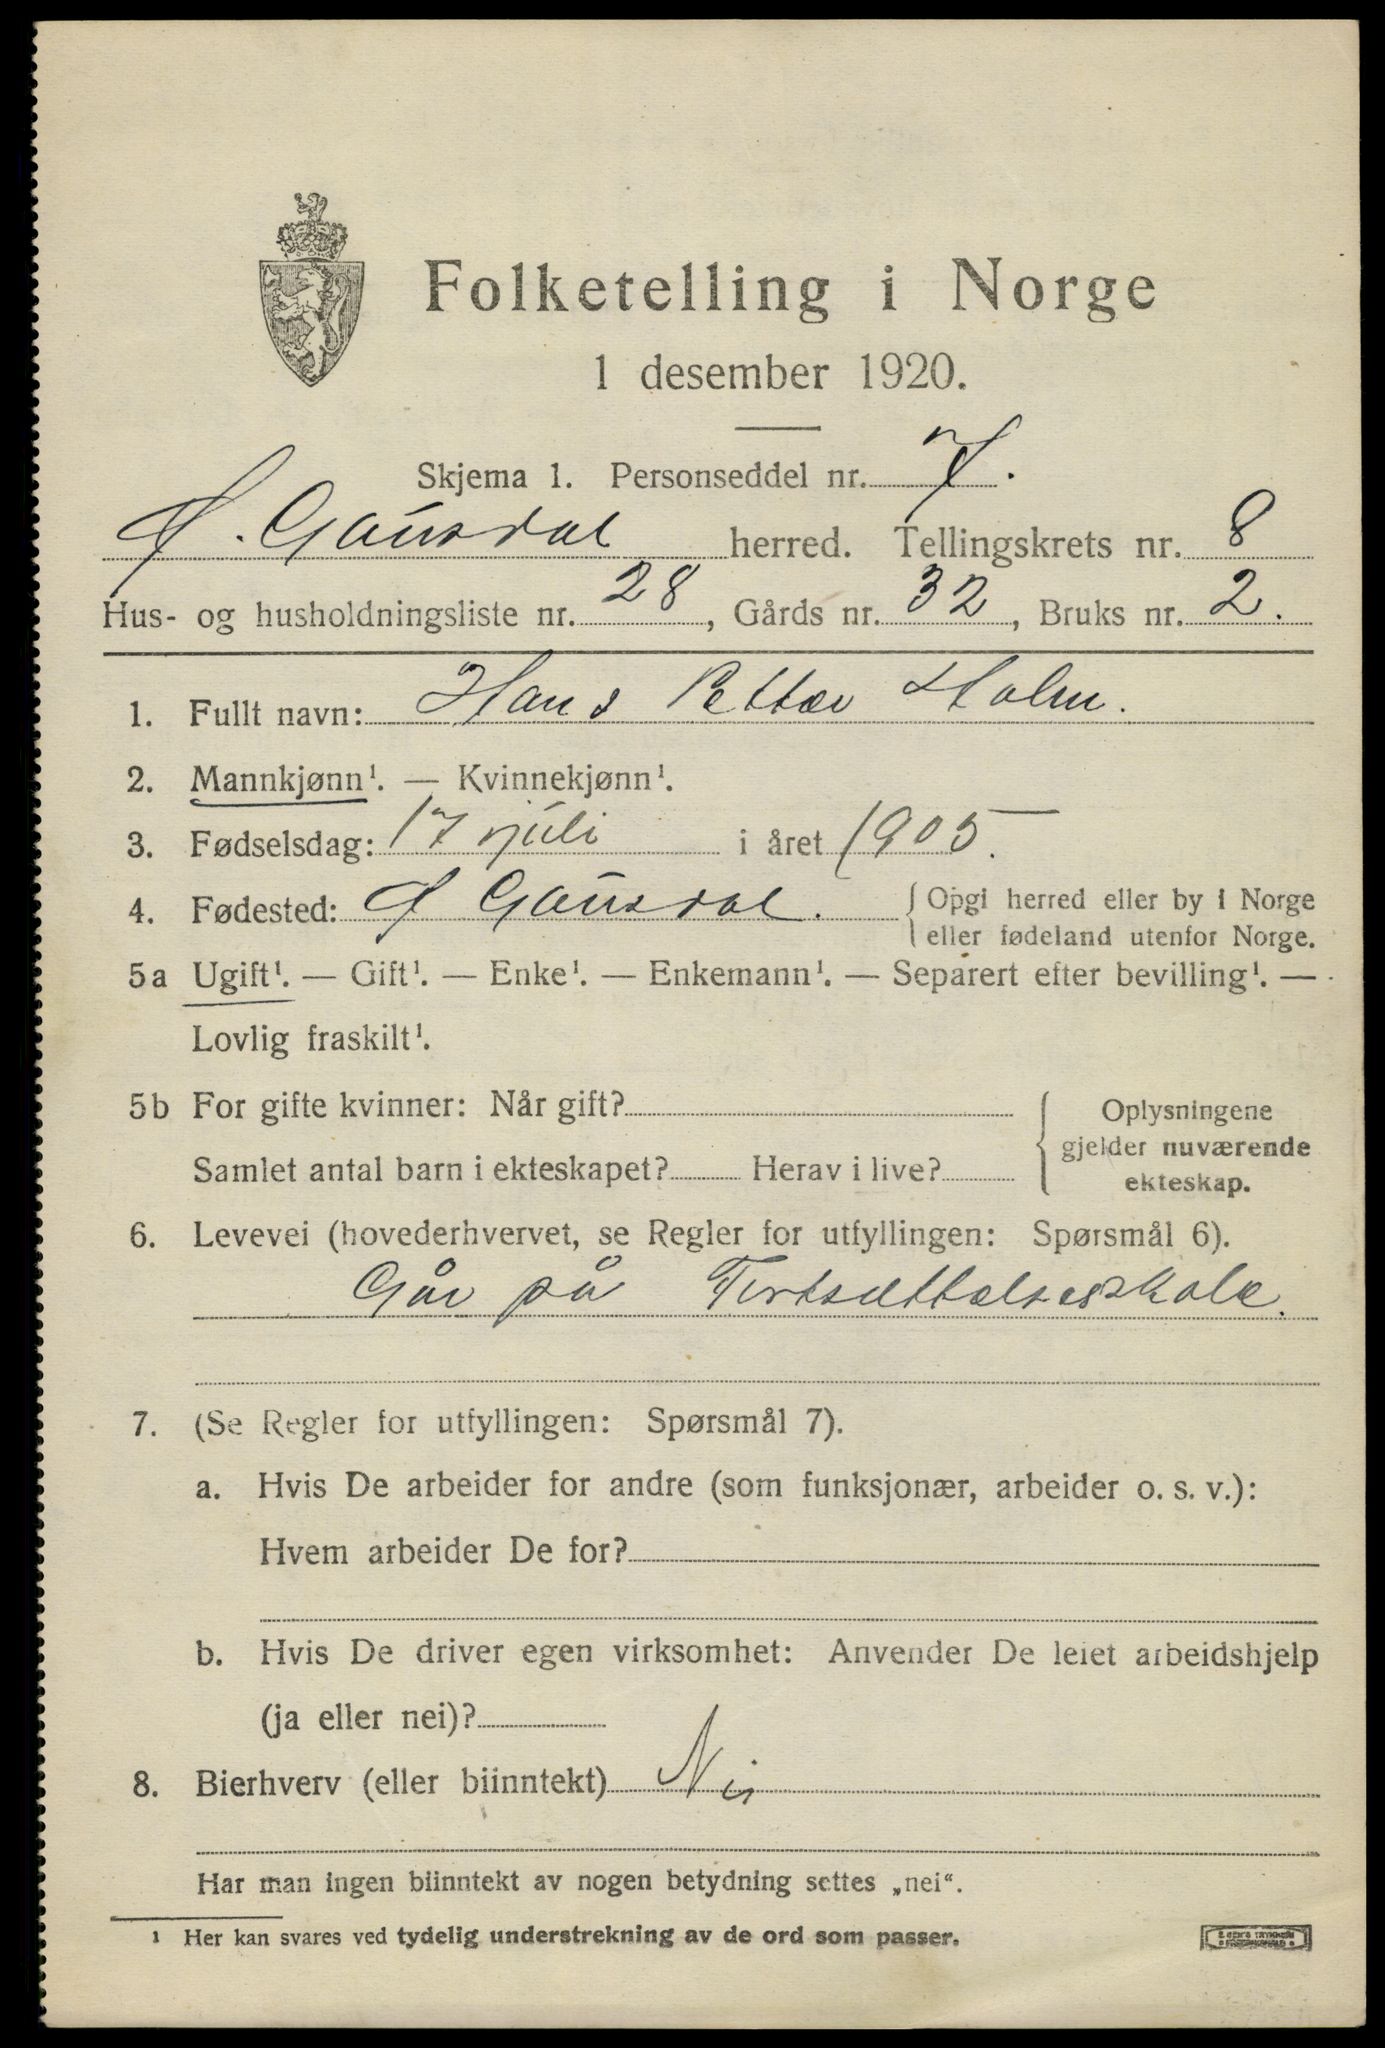 Folketelling i Norge
1 desember 1920.
Skjema 1. Personseddel nr. 7.
Ø. Gausdal herred. Tellingskrets nr. 8
Hus- og husholdningsliste nr. 28, Gårds nr. 32, Bruks nr. 2.
1. Fullt navn: Hans Petter Holm.
2. Mannkjønn¹. — Kvinnekjønn¹.
3. Fødselsdag: 17 juli i året 1905.
4. Fødested: Ø Gausdal. { Opgi herred eller by i Norge
eller fødeland utenfor Norge.
5a Ugift¹. — Gift¹. — Enke¹. — Enkemann¹. — Separert efter bevilling¹. —
Lovlig fraskilt¹.
5b For gifte kvinner: Når gift?
Samlet antal barn i ekteskapet? Herav i live?
Oplysningene
gjelder nuværende
ekteskap.
6. Levevei (hovederhvervet, se Regler for utfyllingen: Spørsmål 6).
Går på Fortsættelsesskole.
7. (Se Regler for utfyllingen: Spørsmål 7).
a. Hvis De arbeider for andre (som funksjonær, arbeider o. s. v.):
Hvem arbeider De for?
b. Hvis De driver egen virksomhet: Anvender De leiet arbeidshjelp
(ja eller nei)?
8. Bierhverv (eller biinntekt) Nei
Har man ingen biinntekt av nogen betydning settes „nei“.
¹ Her kan svares ved tydelig understrekning av de ord som passer.